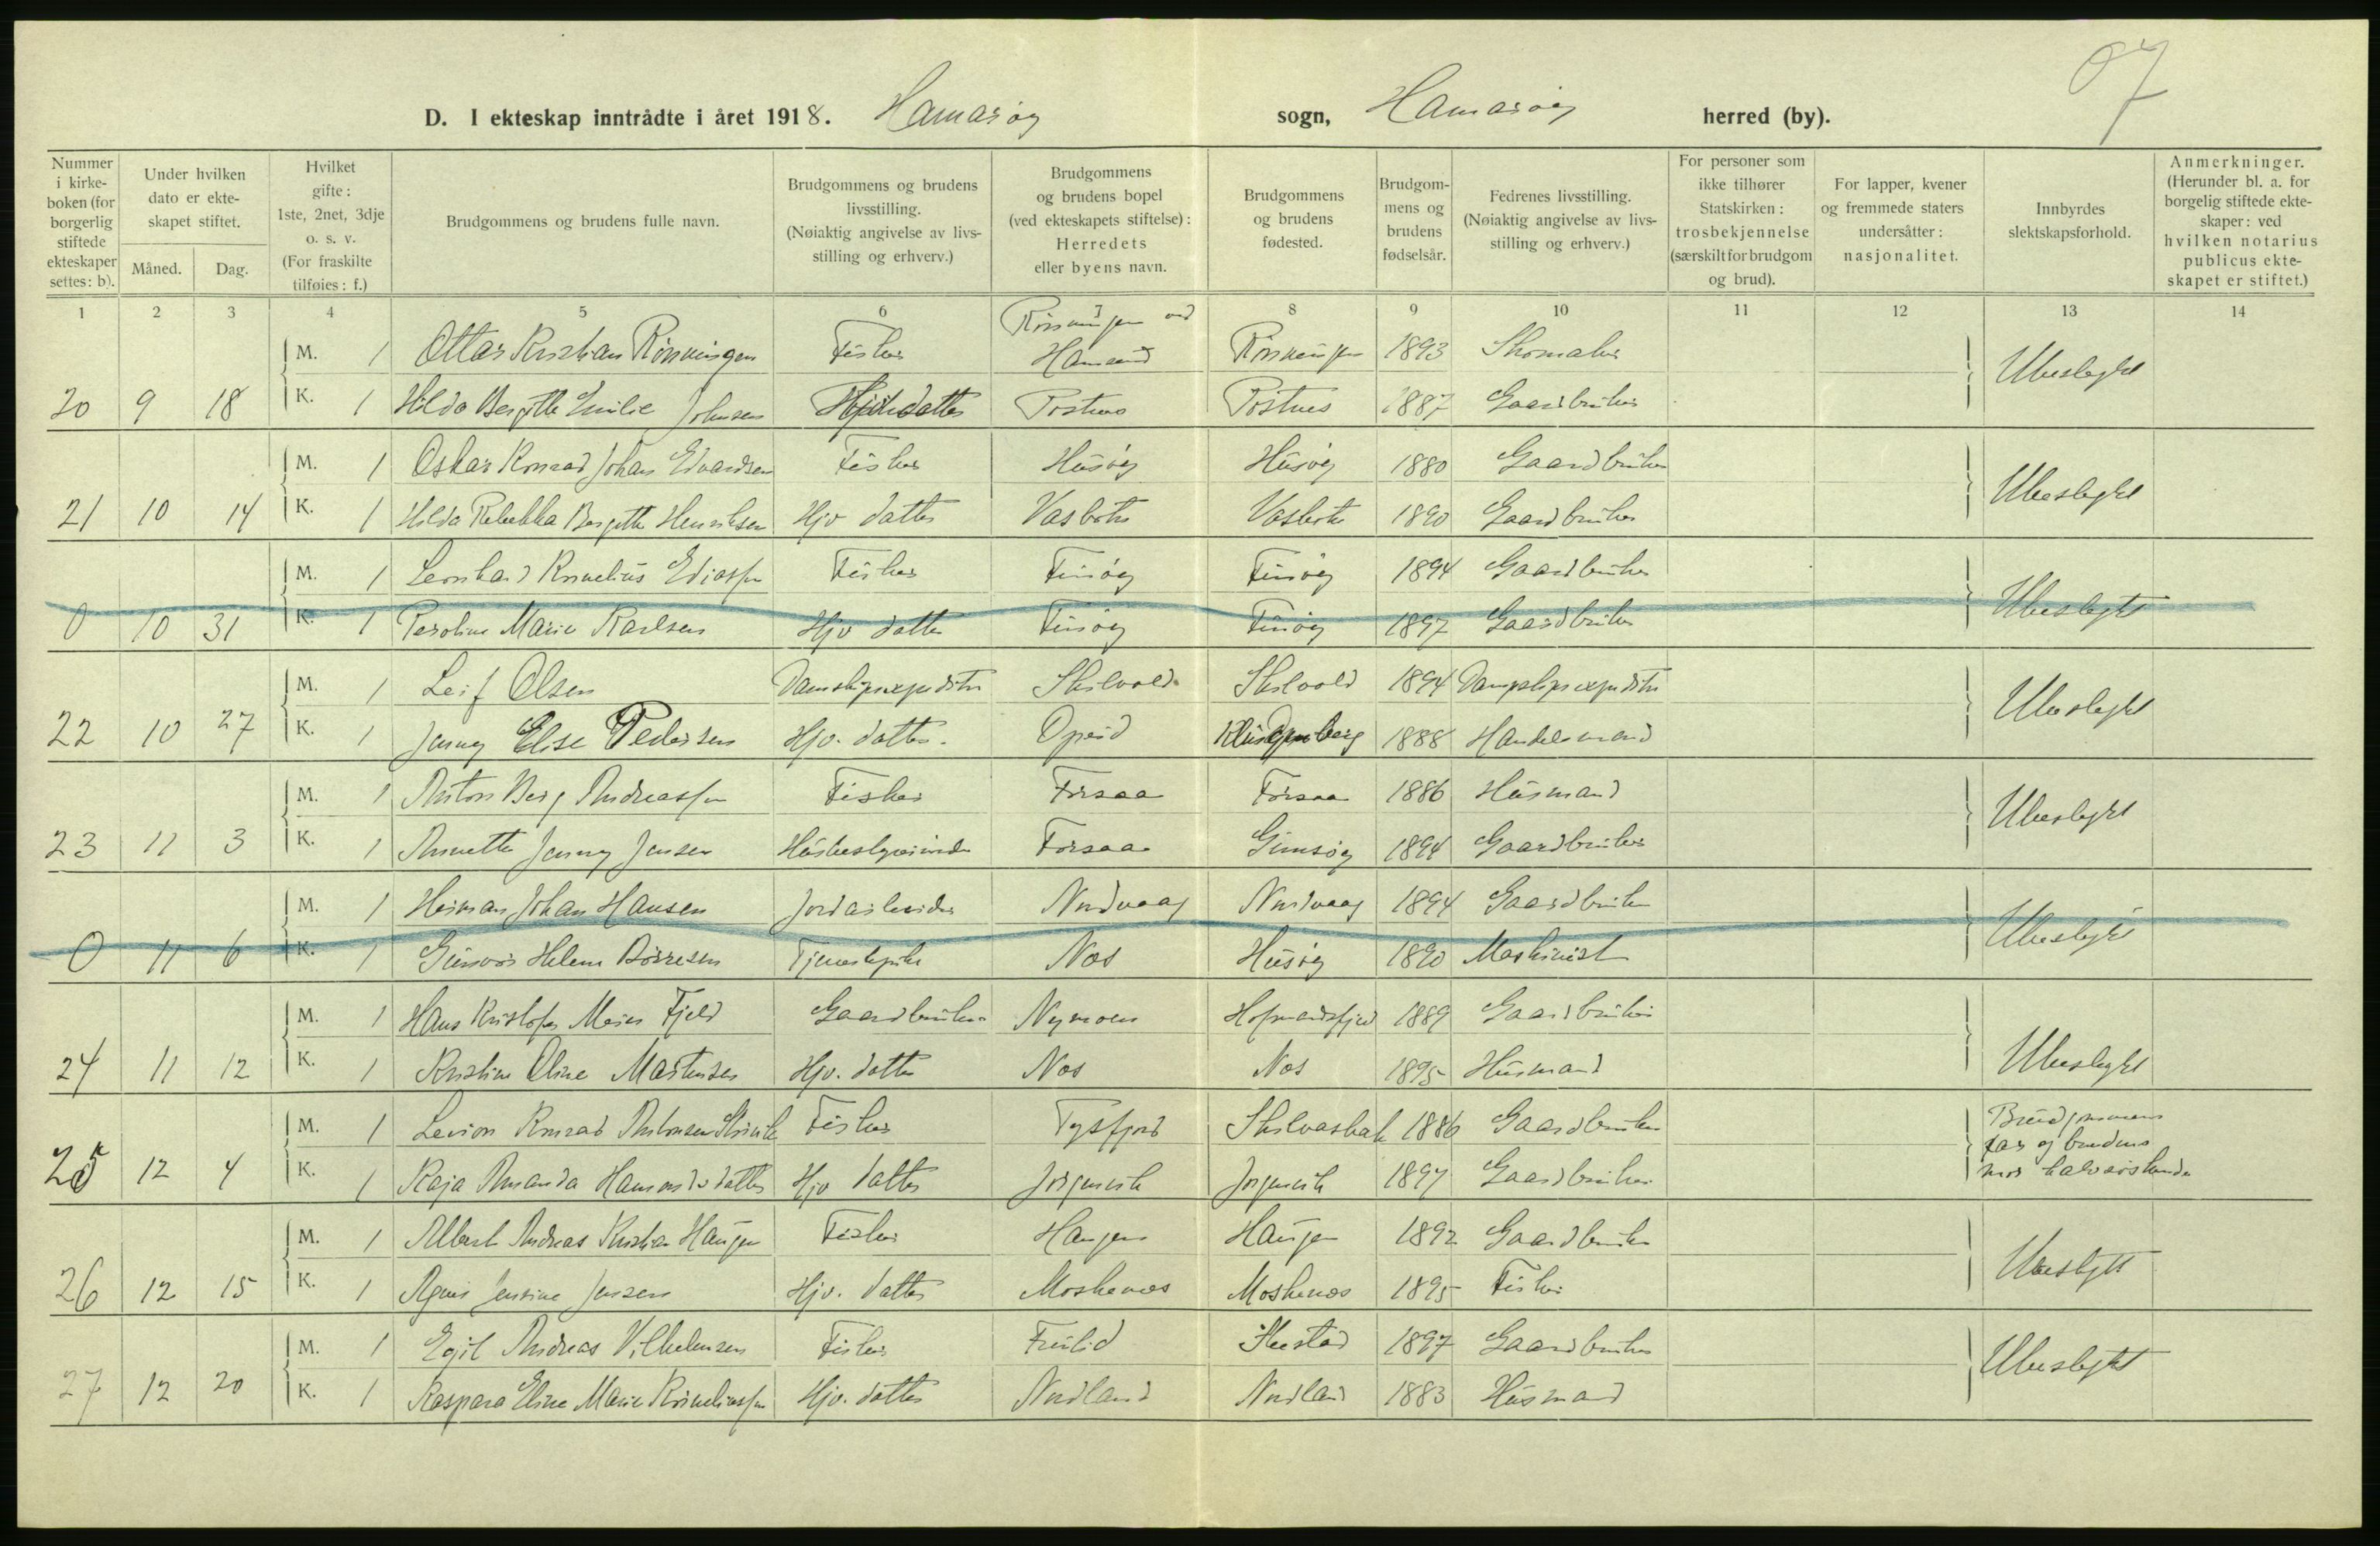 07
D. I ekteskap inntrådte i året 1918. Hamarøy sogn, Hamarøy herred (by).
Nummer i kirkeboken (for borgerlig stiftede ekteskaper settes: b).
Under hvilken dato er ekteskapet stiftet.
Måned. Dag.
Hvilket gifte: 1ste, 2net, 3dje o. s. v. (For fraskilte tilføies: f.)
Brudgommens og brudens fulle navn.
Brudgommens og brudens livsstilling. (Nøiaktig angivelse av livsstilling og erhverv.)
Brudgommens og brudens bopel (ved ekteskapets stiftelse): Herredets eller byens navn.
Brudgommens og brudens fødested.
Brudgommens og brudens fødselsår.
Fedrenes livsstilling. (Nøiaktig angivelse av livsstilling og erhverv.)
For personer som ikke tilhører Statskirken: trosbekjennelse (særskilt for brudgom og brud).
For lapper, kvener og fremmede staters undersåtter: nasjonalitet.
Innbyrdes slektskapsforhold.
Anmerkninger. (Herunder bl. a. for borgelig stiftede ekteskaper: ved hvilken notarius publicus ekteskapet er stiftet.)
1 2 3 4 5 6 7 8 9 10 11 12 13 14
M. 1 Ottar Kristian Rønningen Fisker Rønningen Hamsund Rønningen 1893 Skomaker Ubeslegtet
20 9 18 K. 1 Hilda Bergitte Emilie Johnsen Hjv datter Postnes Postnes 1887 Gaardbruker
M. 1 Oskar Konrad Johan Edvardsen Fisker Husøy Husøy 1880 Gaardbruker Ubeslegtet
21 10 14 K. 1 Hilda Rebekka Bergitte Henriksen Hjv datter Vasbotn Vasbotn 1890 Gaardbruker
M. 1 Leonhard Kornelius Ediassen Fisker Finøy Finøy 1894 Gaardbruker Ubeslegtet
0 10 31 K. 1 Peroline Marie Karlsen Hjv datter Finøy Finøy 1897 Gaardbruker
M. 1 Leif Olsen Damskipsexpeditør Skilvold Skilvold 1894 Dampskipsexpeditør Ubeslegtet
22 10 27 K. 1 Jenny Elise Pedersen Hjv. datter. Opeid 1888 Handelsmand
M. 1 Anton Berg Andreassen Fisker Forsaa Forsaa 1886 Husmand Ubeslegtet
23 11 3 K. 1 Annette Jenny Jensen Husbestyrerinde Forsaa Gimsøy 1894 Gaardbruker
M. 1 Herman Johan Hansen Jordarbeider Nordvaag Nordvaag 1894 Gaardbruker Ubeslegtet
0 11 6 K. 1 Gunvor Helene Børresen Tjenestepike Nes Husøy 1890 Maskinist
M. 1 Hans Kristofer Meier Fjeld Gaardbruker Nymoen 1889 Gaardbruker Ubeslegtet
24 11 12 K. 1 Kristine Oline Martinsen Hjv. datter Nes Nes 1895 Husmand
M. 1 Konrad Antonsen Fisker Tysfjord Skilvasbak 1886 Gaardbruker Brudgommens far og brudens mor halvsøskende
25 12 4 K. 1 Kaja Amanda Hamundsdatter Hjv datter 1897 Gaardbruker
M. 1 Albert Andreas Kristian Haugen Fisker Haugen Haugen 1892 Gaardbruker Ubeslegtet
26 12 15 K. 1 Agnes Jensine Jensen Hjv. datter Moskenes Moskenes 1895 Fisker
M. 1 Egil Andreas Vilhelmsen Fisker 1897 Gaardbruker Ubeslegtet
27 12 20 K. 1 Kaspara Eline Marie Korneliussen Hjv. datter Nordland Nordland 1883 Husmand